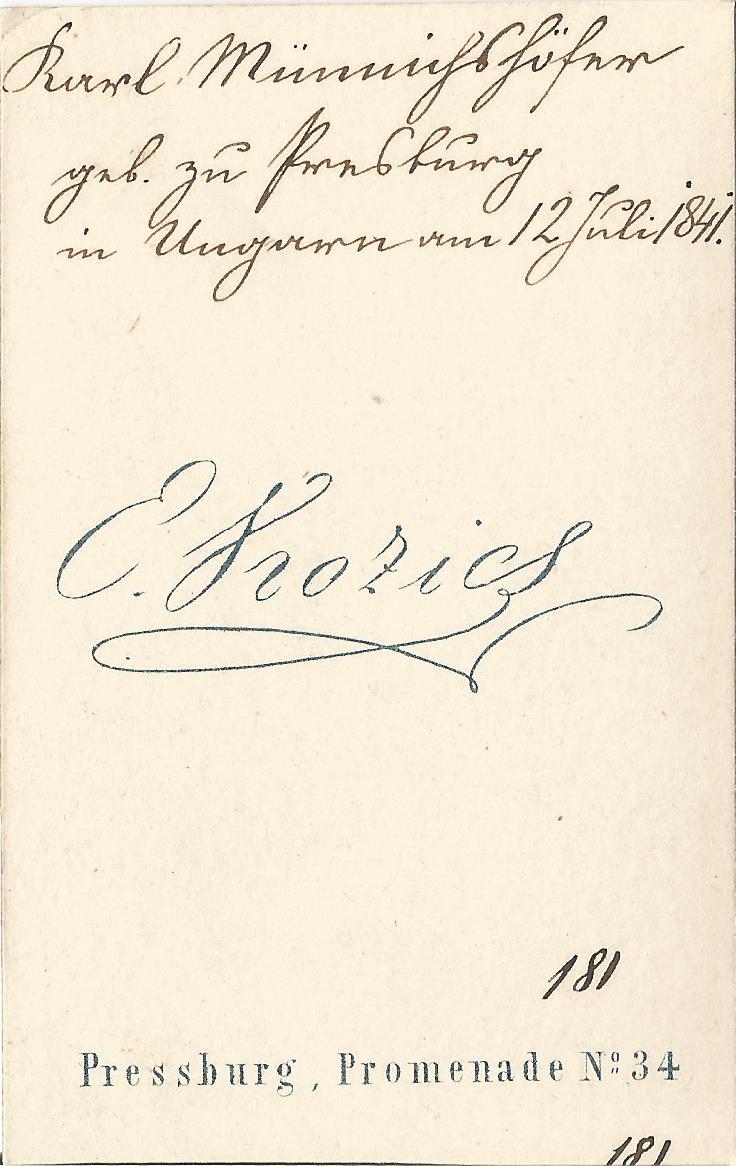 Karl Münnichshöfer
geb. zu Presburg
in Ungarn am 12 Juli 1841.
E. Kozics
181
Pressburg, Promenade Nº 34
181